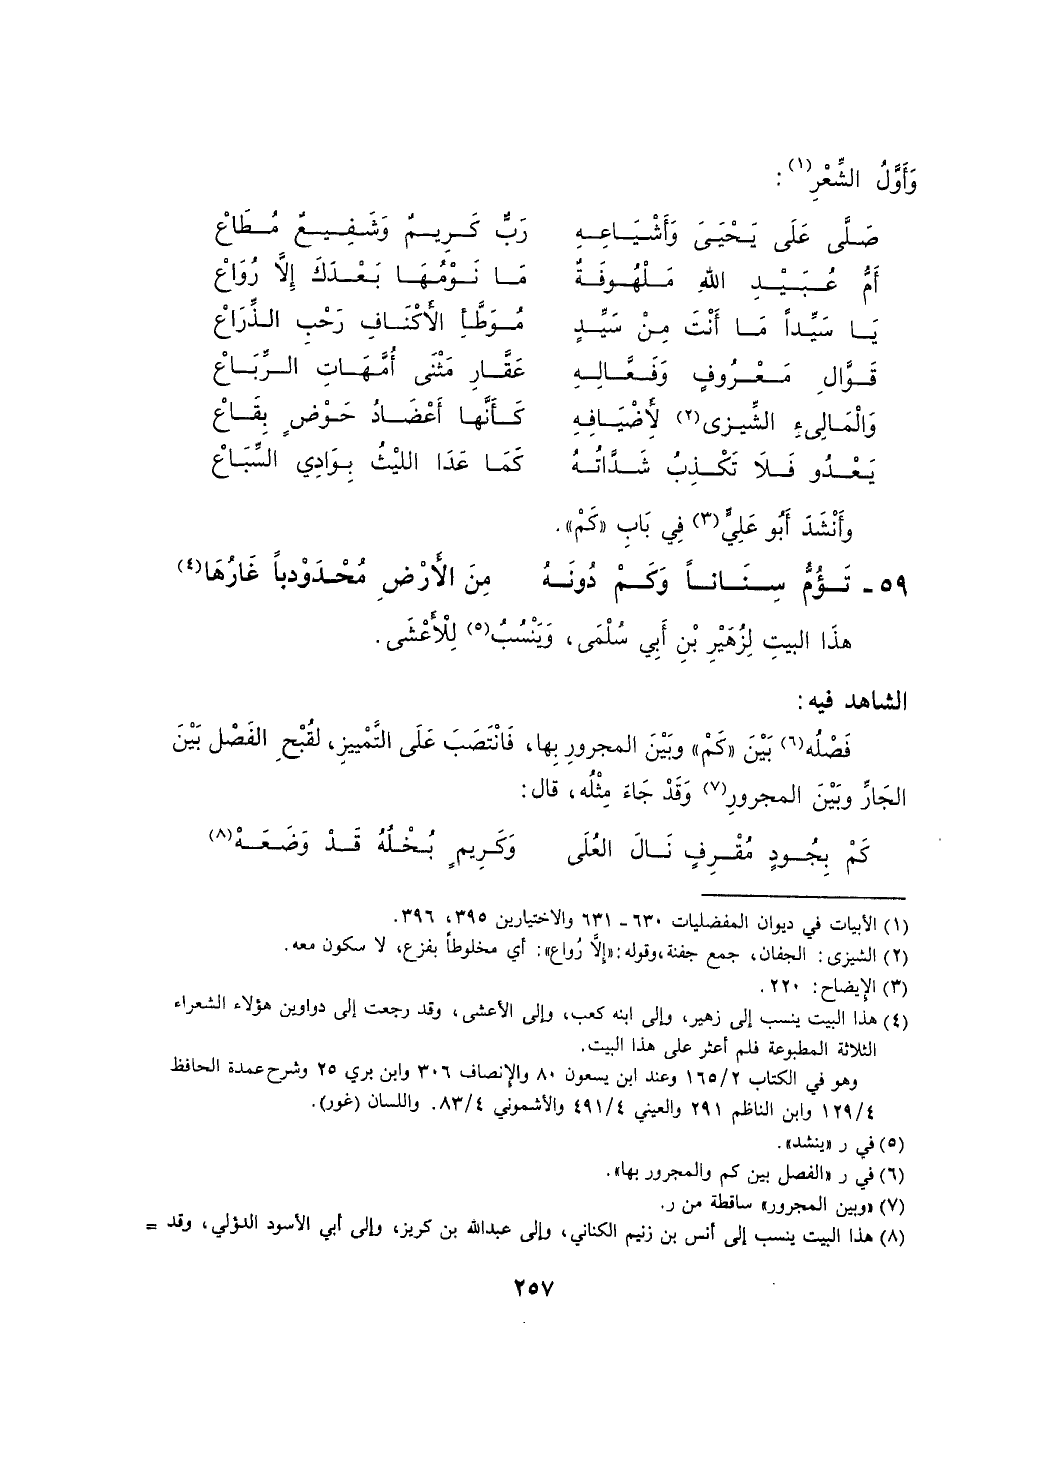 وَأَوَّلُ الشِّعْرِ(١) :
صَلَّى عَلَى يَحْيَىَ وَأَشْيَاعِهِ رَبٌّ كَرِيمٌ وَشَفِيعٌ مُطَاعْ
أُمُّ عُبَيْدِ اللهِ مَلْهُوفَةٌ مَا نَوْمُهَا بَعْدَكَ إِلَّا رُوَاعْ
يَا سَيِّداً مَا أَنْتَ مِنْ سَيِّدٍ مُوَطَّأِ الأَكْنَافِ رَحْبِ الذِّرَاعْ
قَوَّالِ مَعْرُوفٍ وَفَعَّالِهِ عَقَّارِ مَثْنَى أُمَّهَاتِ الرِّبَاعْ
وَالْمَالِىءِ الشِّيزى(٢) لأَضْيَافِهِ كَأَنَّها أَعْضَادُ حَوْضٍ بِقَاعْ
يَعْدُو فَلَا تَكْذِبُ شَدَّاتُهُ كَمَا عَدَا اللَيْثُ بِوَادِي السِّبَاعْ
وأَنْشَدَ أَبُو عَلِيٍّ(٣) فِي بَابِ «كَمْ».
٥٩ - تَؤُمُّ سِنَاناً وَكَمْ دُونَهُ مِنَ الأَرْضِ مُحْدَوْدِباً غَارُهَا(٤)
هذَا البيتِ لِزُهَيْرِ بْنِ أَبِي سُلْمَى، وَيَنْسُبُ(٥) لِلْأَعْشَى.
الشاهد فيه:
فَصْلُه(٦) بَيْنَ «كَمْ» وبَيْنَ المجرورِ بِها، فَانْتَصَبَ عَلَى التَّمْييزِ، لقُبْحِ الفَصْلِ بَيْنَ
الجَارِّ وبَيْنَ المجرورِ(٧) وَقَدْ جَاءَ مِثْلُه، قال:
كَمْ بِجُودٍ مُقْرِفٍ نَالَ العُلَى وَكَرِيمٍ بُخْلُهُ قَدْ وَضَعَهْ(٨)
(١) الأبيات في ديوان المفضليات ٦٣٠ - ٦٣١ والاختيارين ٣٩٥، ٣٩٦.
(٢) الشيزى: الجفان، جمع جفنة،وقوله:«إلَّا رُواع»: أي مخلوطاً بفزع، لا سكون معه.
(٣) الإيضاح: ٢٢٠.
(٤) هذا البيت ينسب إلى زهير، وإلى ابنه كعب، وإلى الأعشى، وقد رجعت إلى دواوين هؤلاء الشعراء
الثلاثة المطبوعة فلم أعثر على هذا البيت.
وهو في الكتاب ١٦٥/٢ وعند ابن يسعون ٨٠ والإنصاف ٣٠٦ وابن بري ٢٥ وشرح عمدة الحافظ
١٢٩/٤ وابن الناظم ٢٩١ والعيني ٤٩١/٤ والأشموني ٨٣/٤. واللسان (غور).
(٥) في ر «ينشد».
(٦) في ر «الفصل بين كم والمجرور بها».
(٧) «وبين المجرور» ساقطة من ر.
(٨) هذا البيت ينسب إلى أنس بن زنيم الكناني، وإلى عبدالله بن كريز، وإلى أبي الأسود الدؤلي، وقد =
٢٥٧